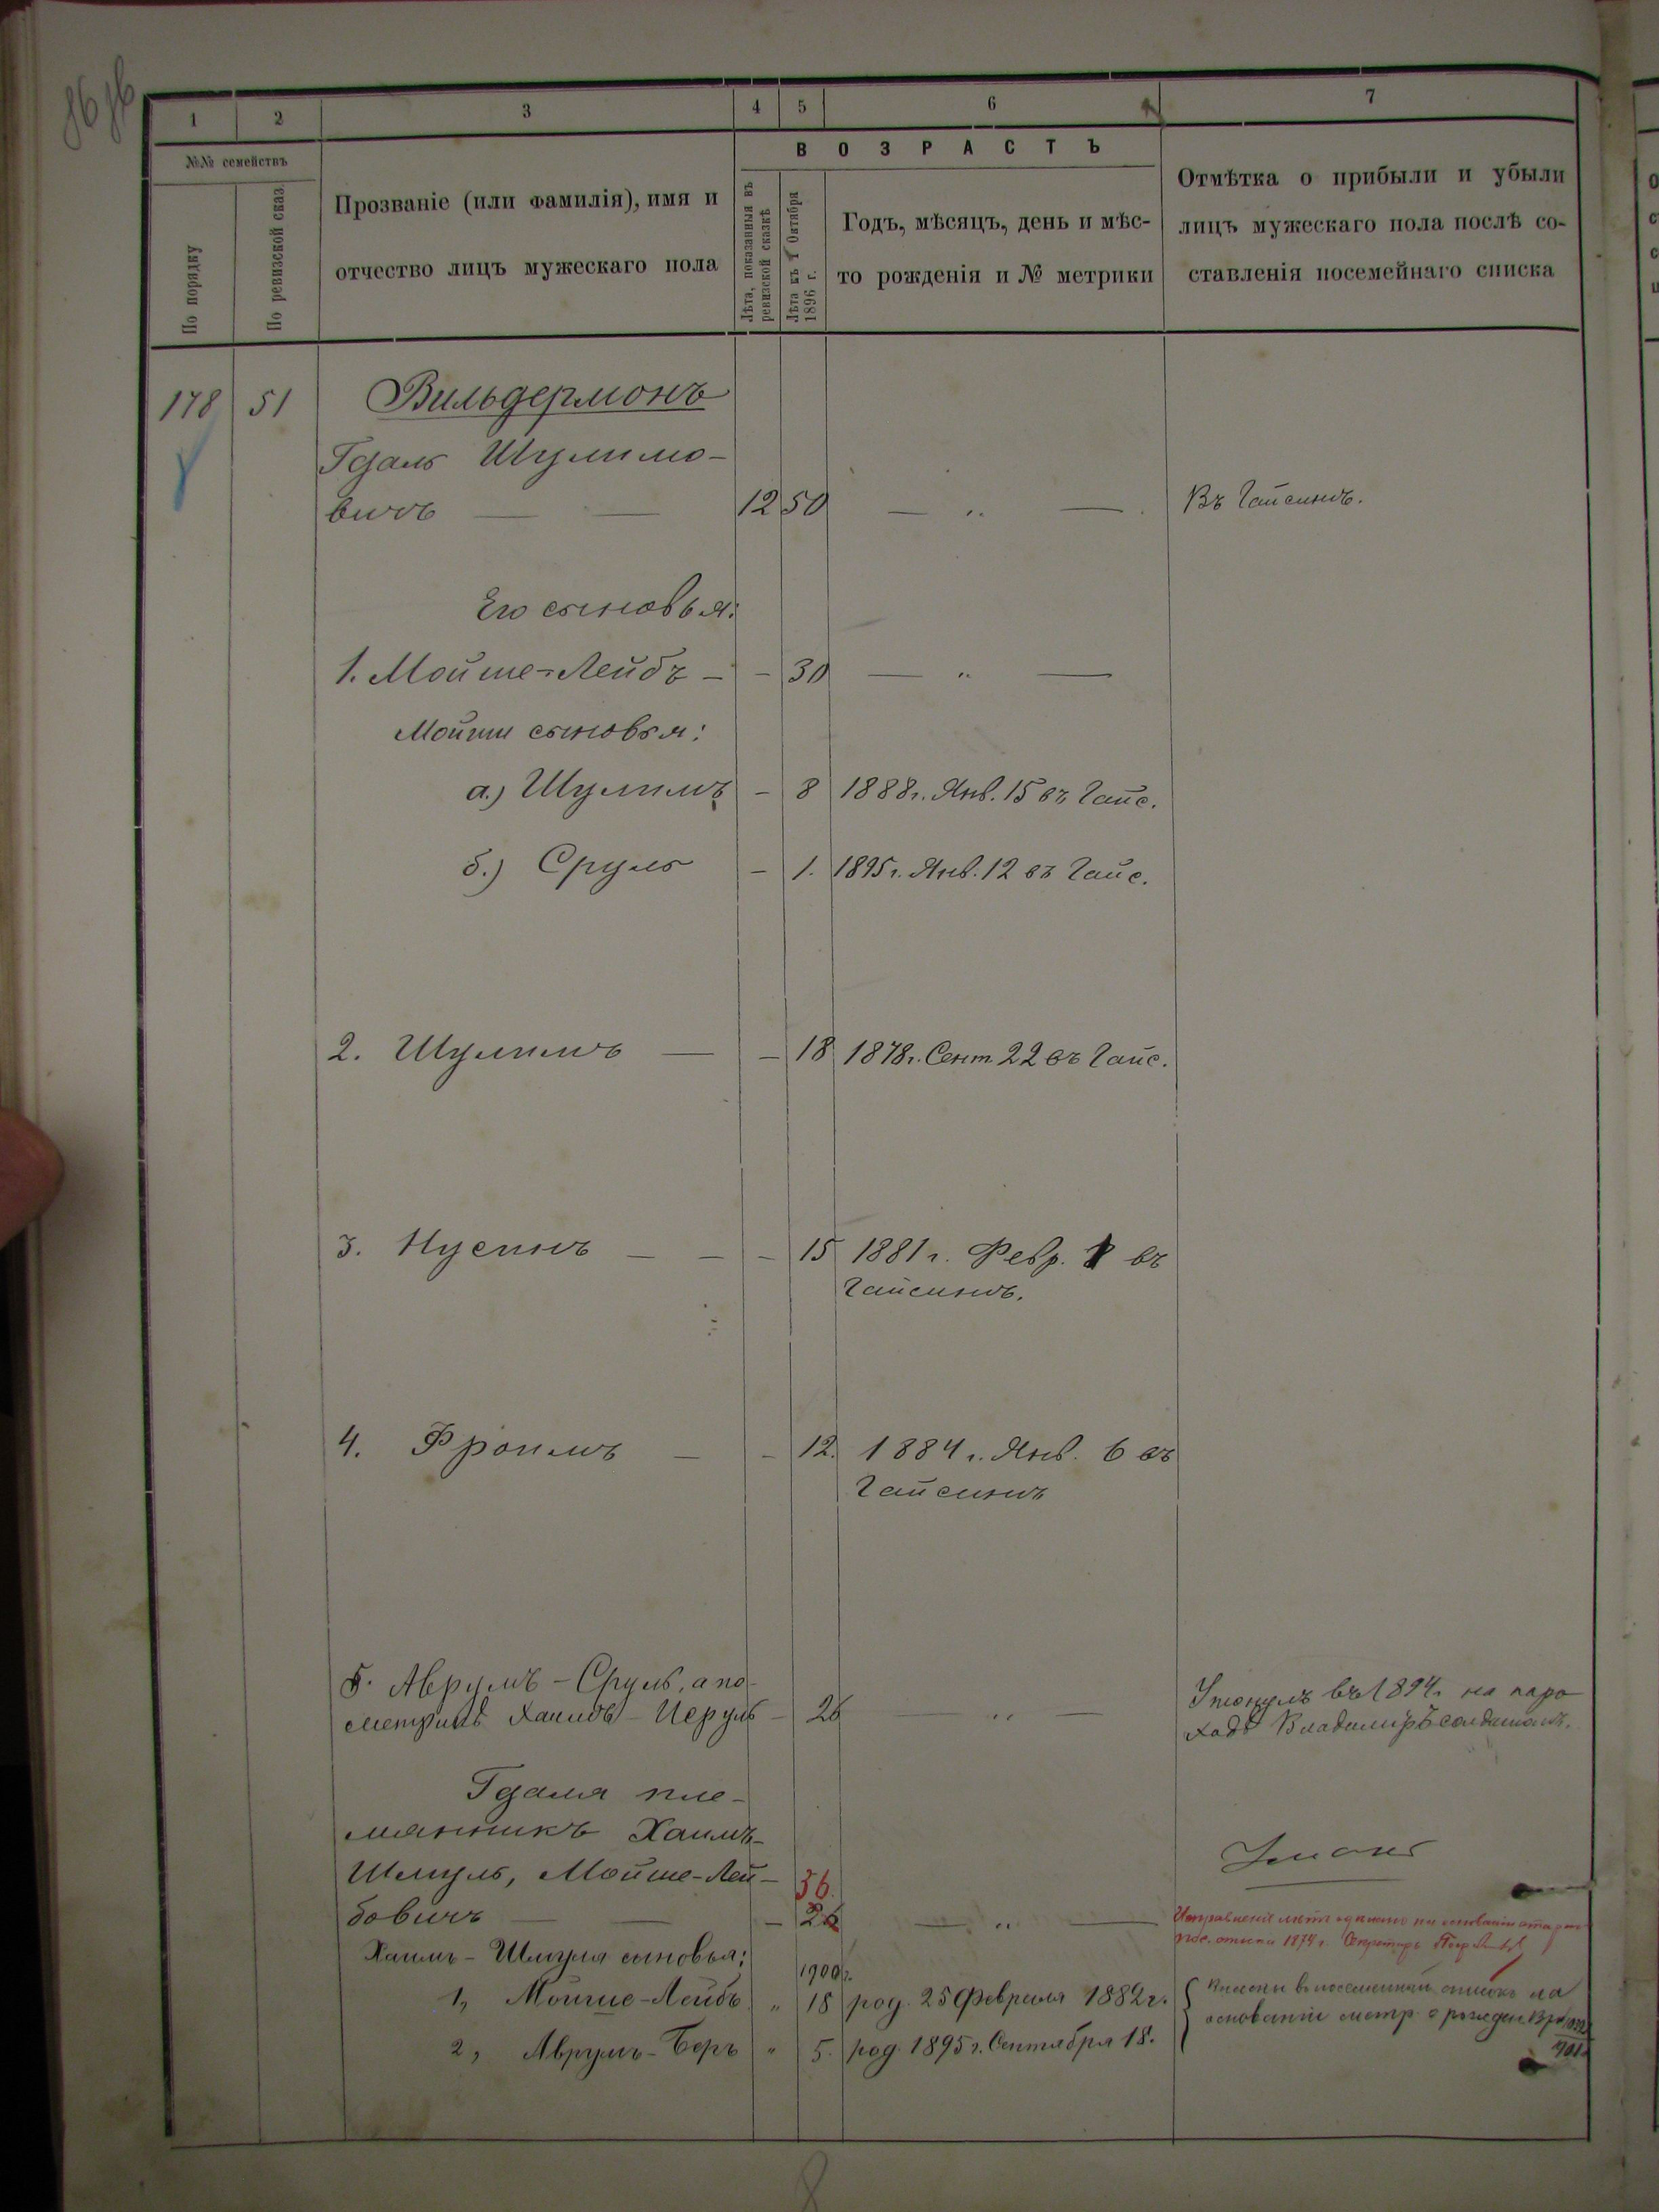 1 2 3 4 5 6 7
№№ семействъ
По порядку
По ревизской сказ.
Прозваніе (или фамилія), имя и
отчество лицъ мужескаго пола
ВОЗРАСТЪ
Лѣта, показанныя въ
ревизской сказкѣ
Лѣта къ 1 Октября
1896 г.
Годъ, мѣсяцъ, день и мѣс-
то рожденія и № метрики
Отмѣтка о прибыли и убыли
лицъ мужескаго пола послѣ со-
ставленія посемейнаго списка
178 51 Вильдермонъ
Гдаль Шулимо-
вичъ — — 12 50 — „ — Въ Гайсинѣ.
Его сыновья:
1. Мойше-Лейбъ — — 30 — „ —
Мойши сыновья:
а.) Шулимъ — 8 1888 г. Янв. 15 въ Гайс.
б.) Сруль — 1. 1895 г. Янв. 12 въ Гайс.
2. Шулимъ — — 18 1878 г. Сент 22 въ Гайс.
3. Нусинъ — — — 15 1881 г. Февр. въ
Гайсинѣ.
4. Фроимъ — — 12. 1884 г. Янв. 6 въ
Гайсинѣ
5. Аврумъ-Сруль, а по
метрикѣ Хаимъ-Исруль — 26 — „ —
Утонулъ въ 1894 г. на паро
ходѣ Владиміръ солдатомъ.
Гдаля пле-
мянникъ Хаимъ-
Шмуль, Мойше-Лей-
бовичъ — — — 36. 26 — „ —
Умань
1874 г. Секретарь
Хаимъ-Шмуля сыновья:
1900 г.
1, Мойше-Лейбъ „ 18 род. 25 Февраля 1882 г.
2, Аврумъ-Беръ „ 5. род. 1895 г. Сентября 18.
Внесены въ посемейный списокъ на
основаніи метр. о рожден.